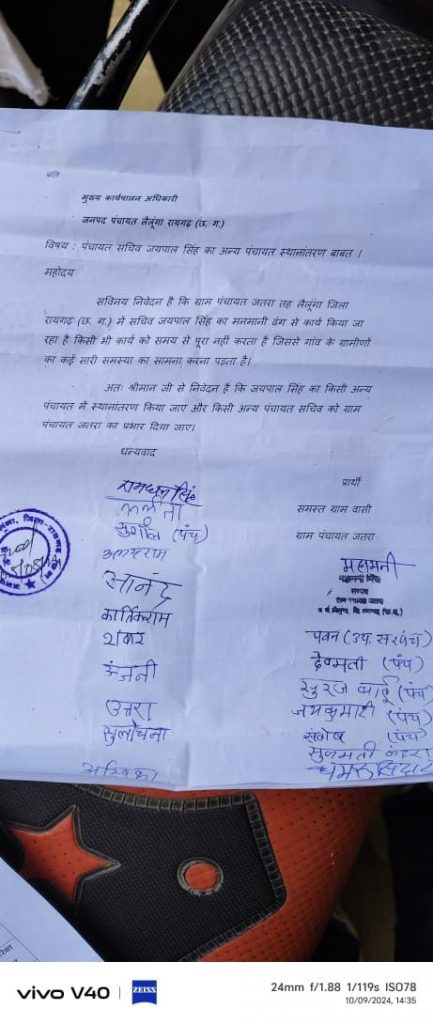 प्रति
मुख्य कार्यपालन अधिकारी
जनपद पंचायत लैलूंगा रायगढ़ (छ. ग.)
विषय : पंचायत सचिव जयपाल सिंह का अन्य पंचायत स्थानांतरण बाबत ।
महोदय
सविनय निवेदन है कि ग्राम पंचायत जतरा तह लैलूंगा जिला
रायगढ़ (छ. ग.) में सचिव जयपाल सिंह का मनमानी ढंग से कार्य किया जा
रहा है किसी भी कार्य को समय से पूरा नहीं करता है जिससे गांव के ग्रामीणों
का कई सारी समस्या का सामना करना पड़ता है।
अतः श्रीमान जी से निवेदन है कि जयपाल सिंह का किसी अन्य
पंचायत में स्थानांतरण किया जाए और किसी अन्य पंचायत सचिव को ग्राम
पंचायत जतरा का प्रभार दिया जाए।
धन्यवाद
प्रार्थी
समस्त ग्राम वासी
ग्राम पंचायत जतरा
रामधन सिंह
ललीता
सुशील (पंच)
सानंद
कार्तिकराम
शंकर
अंजनी
उत्तरा
सुलोचना
महामनी
सरपंच
ग्राम पंचायत जतरा
पवन (उप. सरपंच)
देवमती (पंच)
सुरज बाई (पंच)
जयकुमारी (पंच)
संतोष (पंच)
vivo V40 | ZEISS
24mm f/1.88 1/119s ISO78
10/09/2024, 14:35